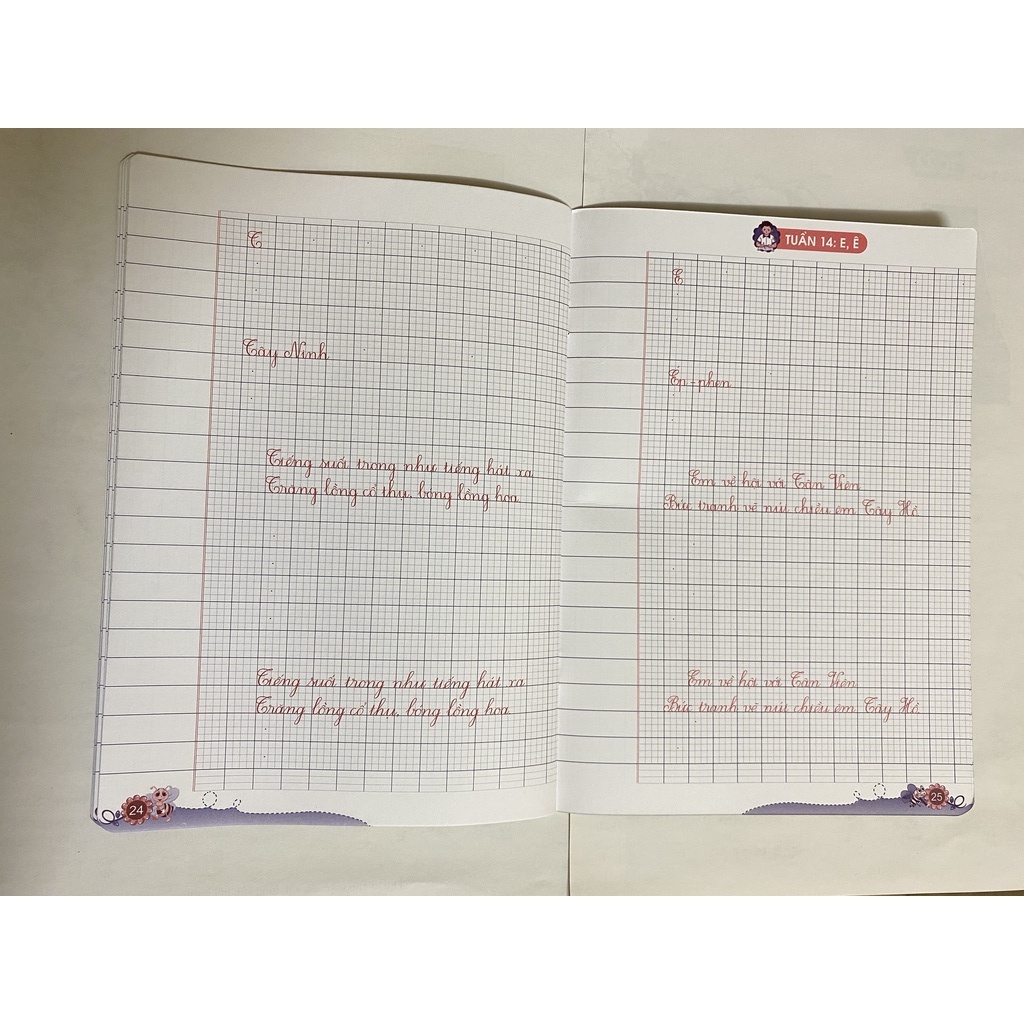 T
Tây Ninh
Tiếng suối trong như tiếng hát xa
Trăng lồng cổ thụ, bóng lồng hoa.
Tiếng suối trong như tiếng hát xa
Trăng lồng cổ thụ, bóng lồng hoa.
24
TUẦN 14: E, Ê
E
Ép-phen
Em về hỏi với Tản Viên
Bức tranh vẽ núi chiều êm Tây Hồ.
Em về hỏi với Tản Viên
Bức tranh vẽ núi chiều êm Tây Hồ.
25